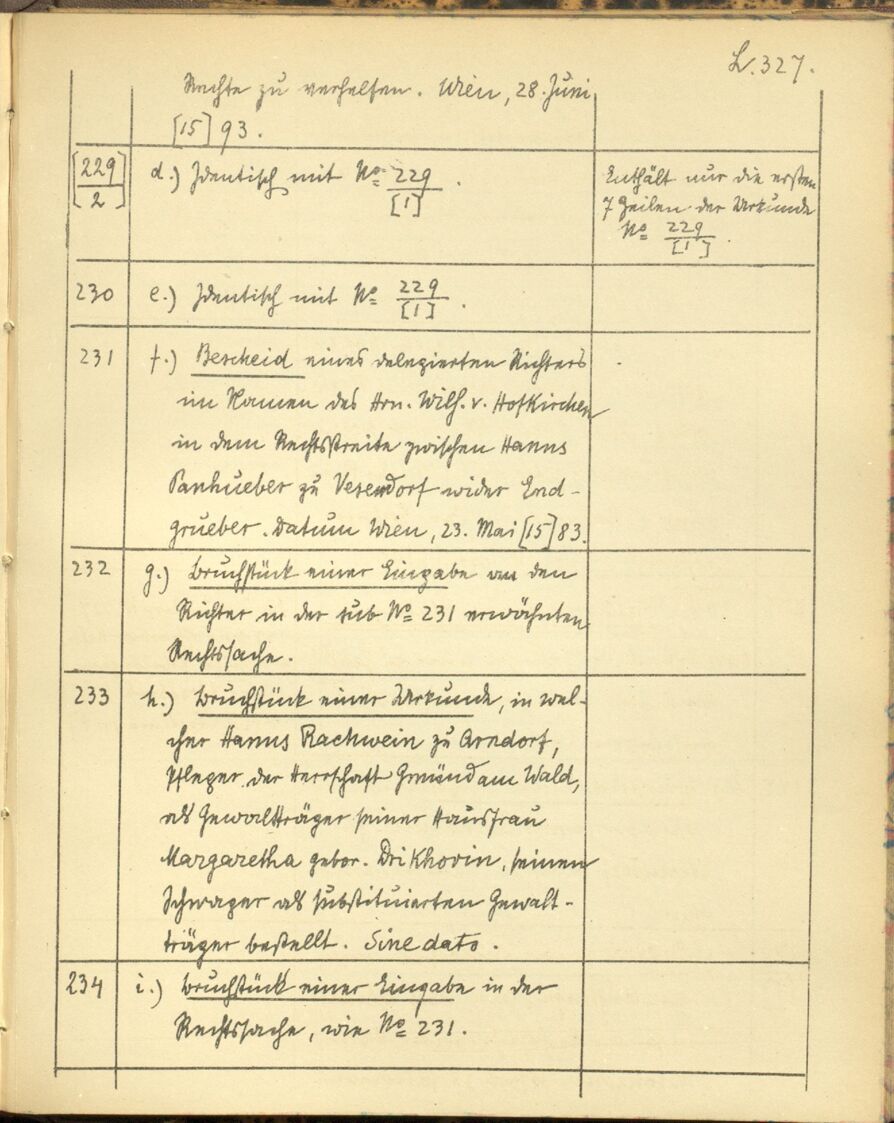 L. 327.
Rechte zu verhelfen. Wien, 28. Juni
[15]93.
[229/2] d.) Identisch mit No 229/[1].
Enthält nur die ersten
7 Zeilen der Urkunde
No 229/[1].
230 e.) Identisch mit No 229/[1].
231 f.) Bescheid eines delegierten Richters
im Namen des Hrn. Wilh. v. Hofkirchen
in dem Rechtsstreite zwischen Hanns
Panhueber zu Vesendorf wider End-
grueber. Datum Wien, 23. Mai [15]83.
232 g.) Bruchstück einer Eingabe an den
Richter in der sub No 231 erwähnten
Rechtssache.
233 h.) Bruchstück einer Urkunde, in wel-
cher Hanns Rachwein zu Arndorf,
Pfleger der Herrschaft Gmünd am Wald,
als Gewaltträger seiner Hausfrau
Margaretha gebor. Drikhovin, seinen
Schwager als substituierten Gewalt-
träger bestellt. Sine dato.
234 i.) Bruchstück einer Eingabe in der
Rechtssache, wie No 231.